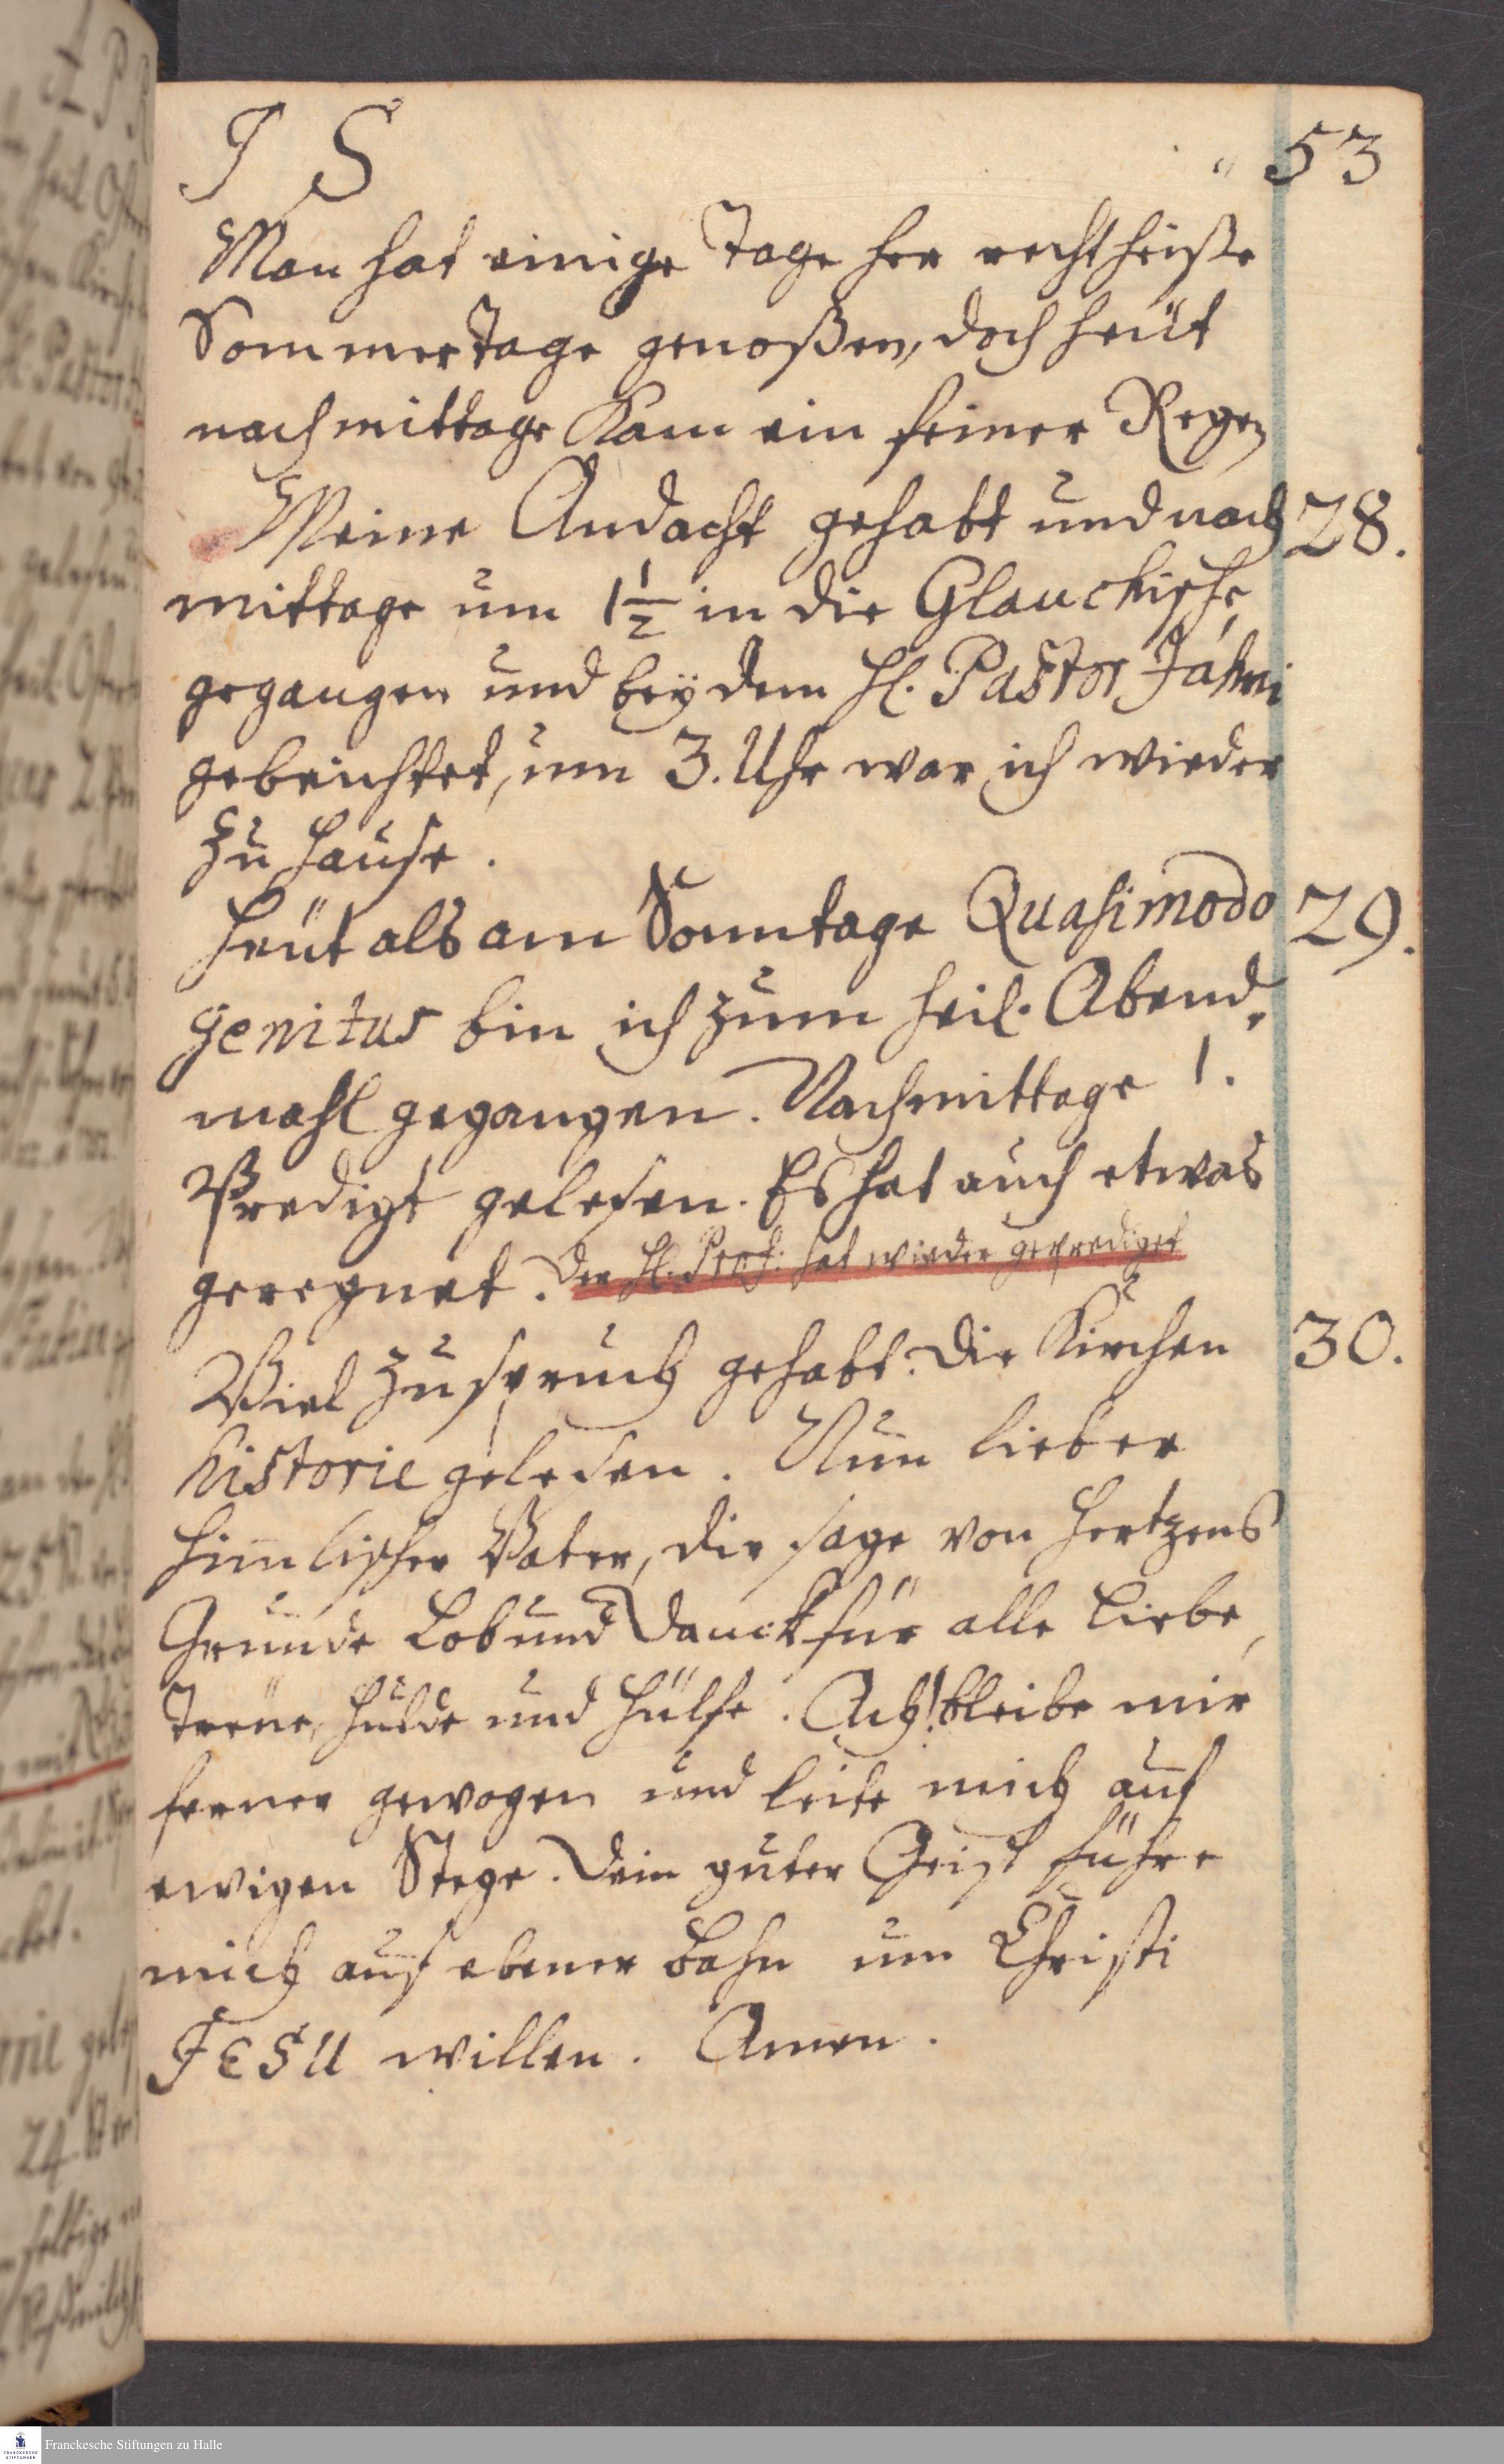 I S 53
Man hat einige Tage her recht heiße
Sommertage genoßen, doch heüt
nachmittage kam ein feiner Regen
Meine Andacht gehabt und nach 28.
mittage um 1½ in die Glauchische
gegangen und beÿ dem H. Pastor Jahni
gebeichtet, um 3. Uhr war ich wieder
zu Hause.
Heüt als am Sonntage Quasimodo 29.
genitus bin ich zum heil. Abend,
mahl gegangen. Nachmittage 1.
Predigt gelesen. Es hat auch etwas
geregnet. Der H. Prof. hat wieder geprediget
Viel Zuspruch gehabt. Die Kirchen 30.
historie gelesen. Nun lieber
himlischer Vater, dir sage von Hertzens
Grunde Lob und Danck für alle Liebe,
Treüe, Hulde und Hülfe. Ach! bleibe mir
ferner gewogen und leite mich auf
ewigen Stege. Dein guter Geist führe
mich auf ebener Bahn um Christi
JESU willen. Amen.
Franckesche Stiftungen zu Halle